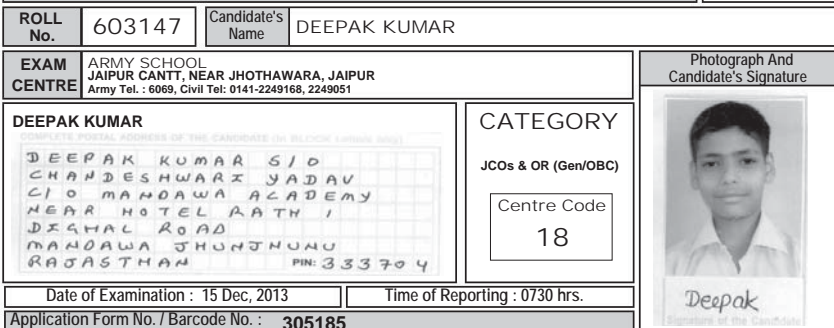 ROLL No. 603147 Candidate's Name DEEPAK KUMAR
EXAM CENTRE
ARMY SCHOOL
JAIPUR CANTT, NEAR JHOTHAWARA, JAIPUR
Army Tel. : 6069, Civil Tel: 0141-2249168, 2249051
Photograph And
Candidate's Signature
DEEPAK KUMAR
COMPLETE POSTAL ADDRESS OF THE CANDIDATE (in BLOCK Letters only)
DEEPAK KUMAR S/O
CHANDESHWARI YADAV
C/O MANDAWA ACADEMY
NEAR HOTEL RATH,
DIGHAL ROAD
MANDAWA JHUNJHUNU
RAJASTHAN PIN: 333704
CATEGORY
JCOs & OR (Gen/OBC)
Centre Code
18
Deepak
Signature of the Candidate
Date of Examination : 15 Dec, 2013 Time of Reporting : 0730 hrs.
Application Form No. / Barcode No. : 305185